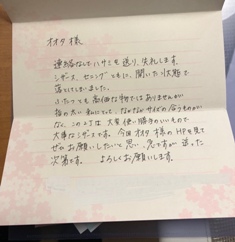 オオタ様
連絡なしでハサミを送り、失礼します。
シザース、セニングともに、開いた状態で
落としてしまいました。
ふたつとも高価な物ではありませんが
指の太い私にとって、なかなかサイズの合うものが
なく、この2丁は大変使い勝手のいいもので
大事なシザースです。今回オオタ様のHPを見て
ぜひお願いしたいと思い、急ですが送った
次第です。 よろしくお願いします。